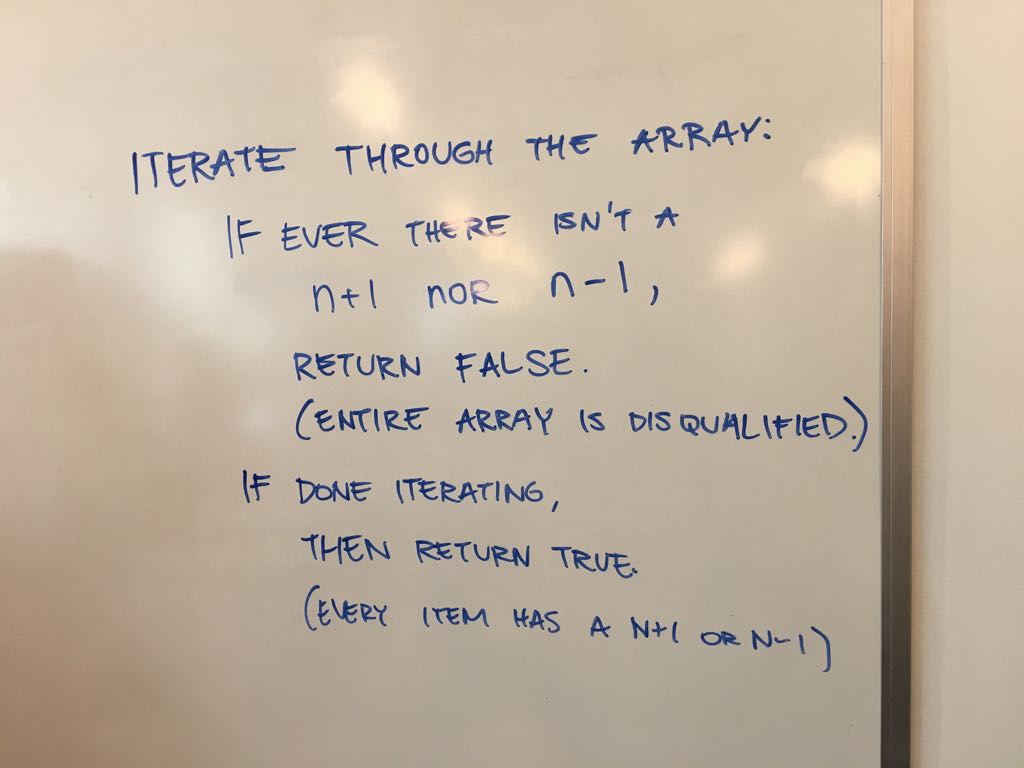 ITERATE THROUGH THE ARRAY:
IF EVER THERE ISN'T A
n+1 nOR n-1,
RETURN FALSE.
(ENTIRE ARRAY IS DISQUALIFIED.)
IF DONE ITERATING,
THEN RETURN TRUE.
(EVERY ITEM HAS A N+1 OR N-1)